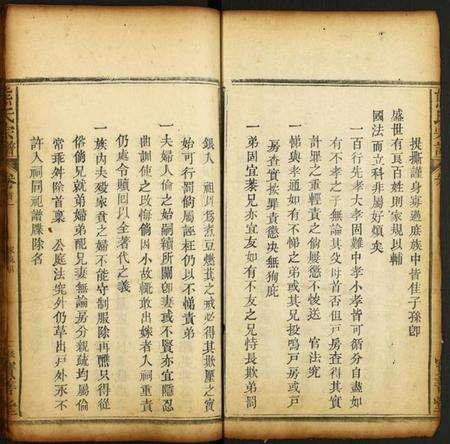 提撕謹身寡過庶族中皆佳子孫卽
盛世有良百姓則家規以輔
國法而立科非屬好煩矣
一百行先孝大孝固難中孝小孝皆可循分自盡如
有不孝之子無論其父母首否但戸房查得其實
計罪之重輕責之倘屢懲不悛送 官法究
一悌與孝通如有不悌之弟或其兄投鳴戸房或戸
房查實挨罪責懲決無狥庇
一弟固宜恭兄亦宜友如有不友之兄恃長欺弟罰
銀入 祖以爲煮豆燃萁之戒必得其欺壓之實
始可行罰倘屬誣枉仍以不悌責弟
一夫婦人倫之始嗣續所關卽妻或不賢亦宜隱忍
曲訓使之改悔倘因小故輒敢出嫁者入祠重責
仍處令贖囘以全著代之義
一族內夫殁家貧之婦不能守制服除再醮只得從
俗倘兄就弟婦弟配兄妻無論房分親疏均屬倫
常乖舛除首稟 公庭法究外仍草出戸外永不
許入祠同祀譜牒除名
氏宗譜